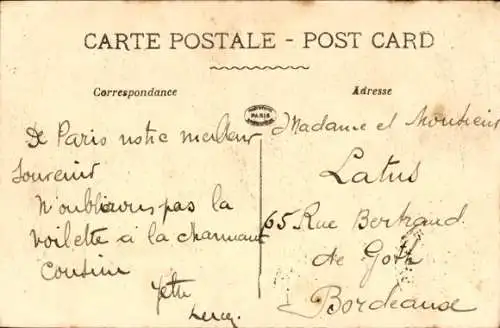 CARTE POSTALE - POST CARD
Correspondance
Adresse
PARIS
De Paris notre meilleur
souvenir
N'oublions pas la
voilette à la charmante
cousine
Madame et Monsieur
Latus
65 Rue Bertrand
de Goth
Bordeaux